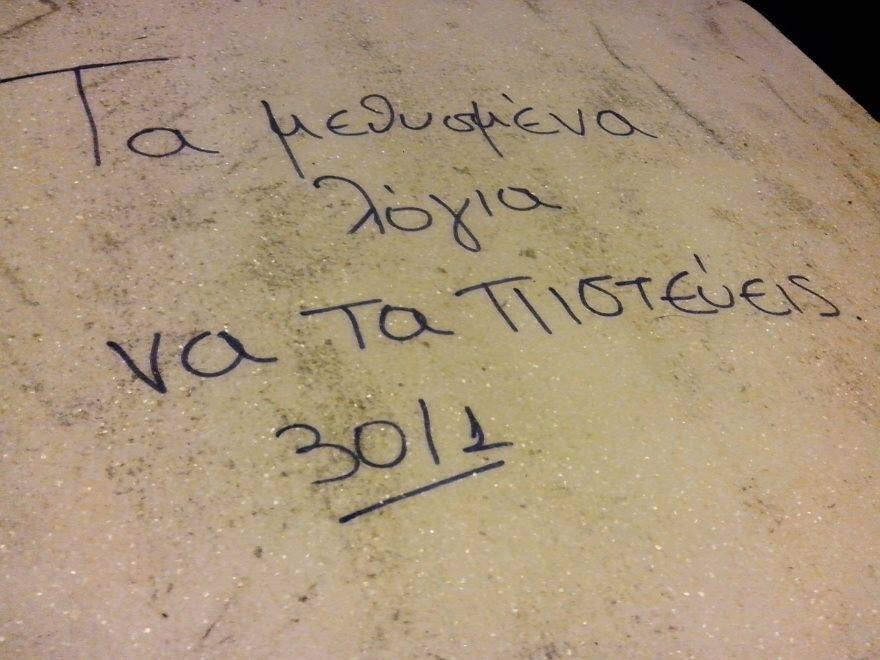 Τα μεθυσμένα
λόγια
να τα πιστεύεις
30/1